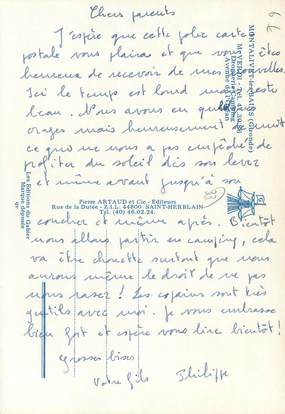 Chers parents
J'espère que cette jolie carte
postale vous plaira et que vous êtes
heureux de recevoir de mes nouvelles.
Ici le temps est lourd mais reste
beau. Nous avons eu quelques
orages mais heureusement la nuit
ce qui ne nous a pas empêché de
profiter du soleil dès son lever
et même avant jusqu'à son
coucher et même après. Bientôt
nous allons partir en camping, cela
va être chouette surtout que nous
aurons même le droit de ne pas
nous raser ! Les copains sont très
gentils avec moi. Je vous embrasse
bien fort et espère vous lire bientôt !
grosses bises
Votre fils Philippe
Pierre ARTAUD et Cie - Editeurs
Rue de la Dutée - Z.I.L. 44800 SAINT-HERBLAIN
Tél. (40) 46.02.24.
MONTALIVET-les-BAINS (Gironde)
Les Editions du Gabier
Marque déposée